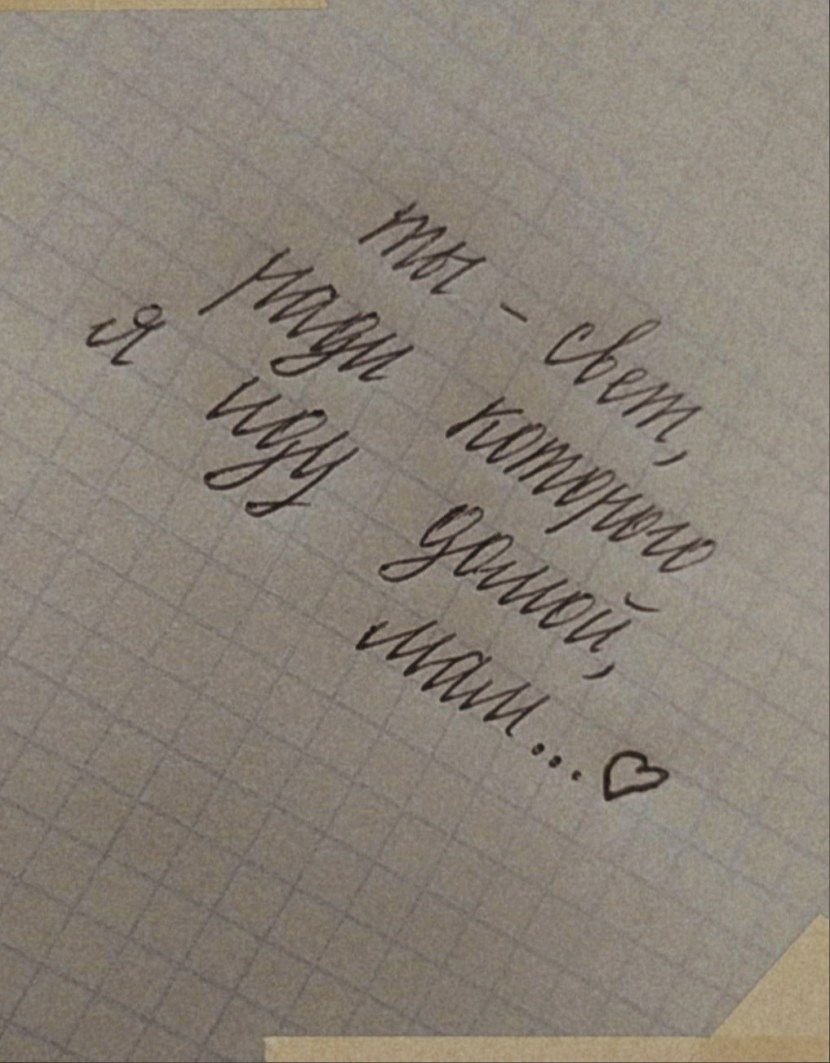 ты - свет,
ради которого
я иду домой,
мам...♡